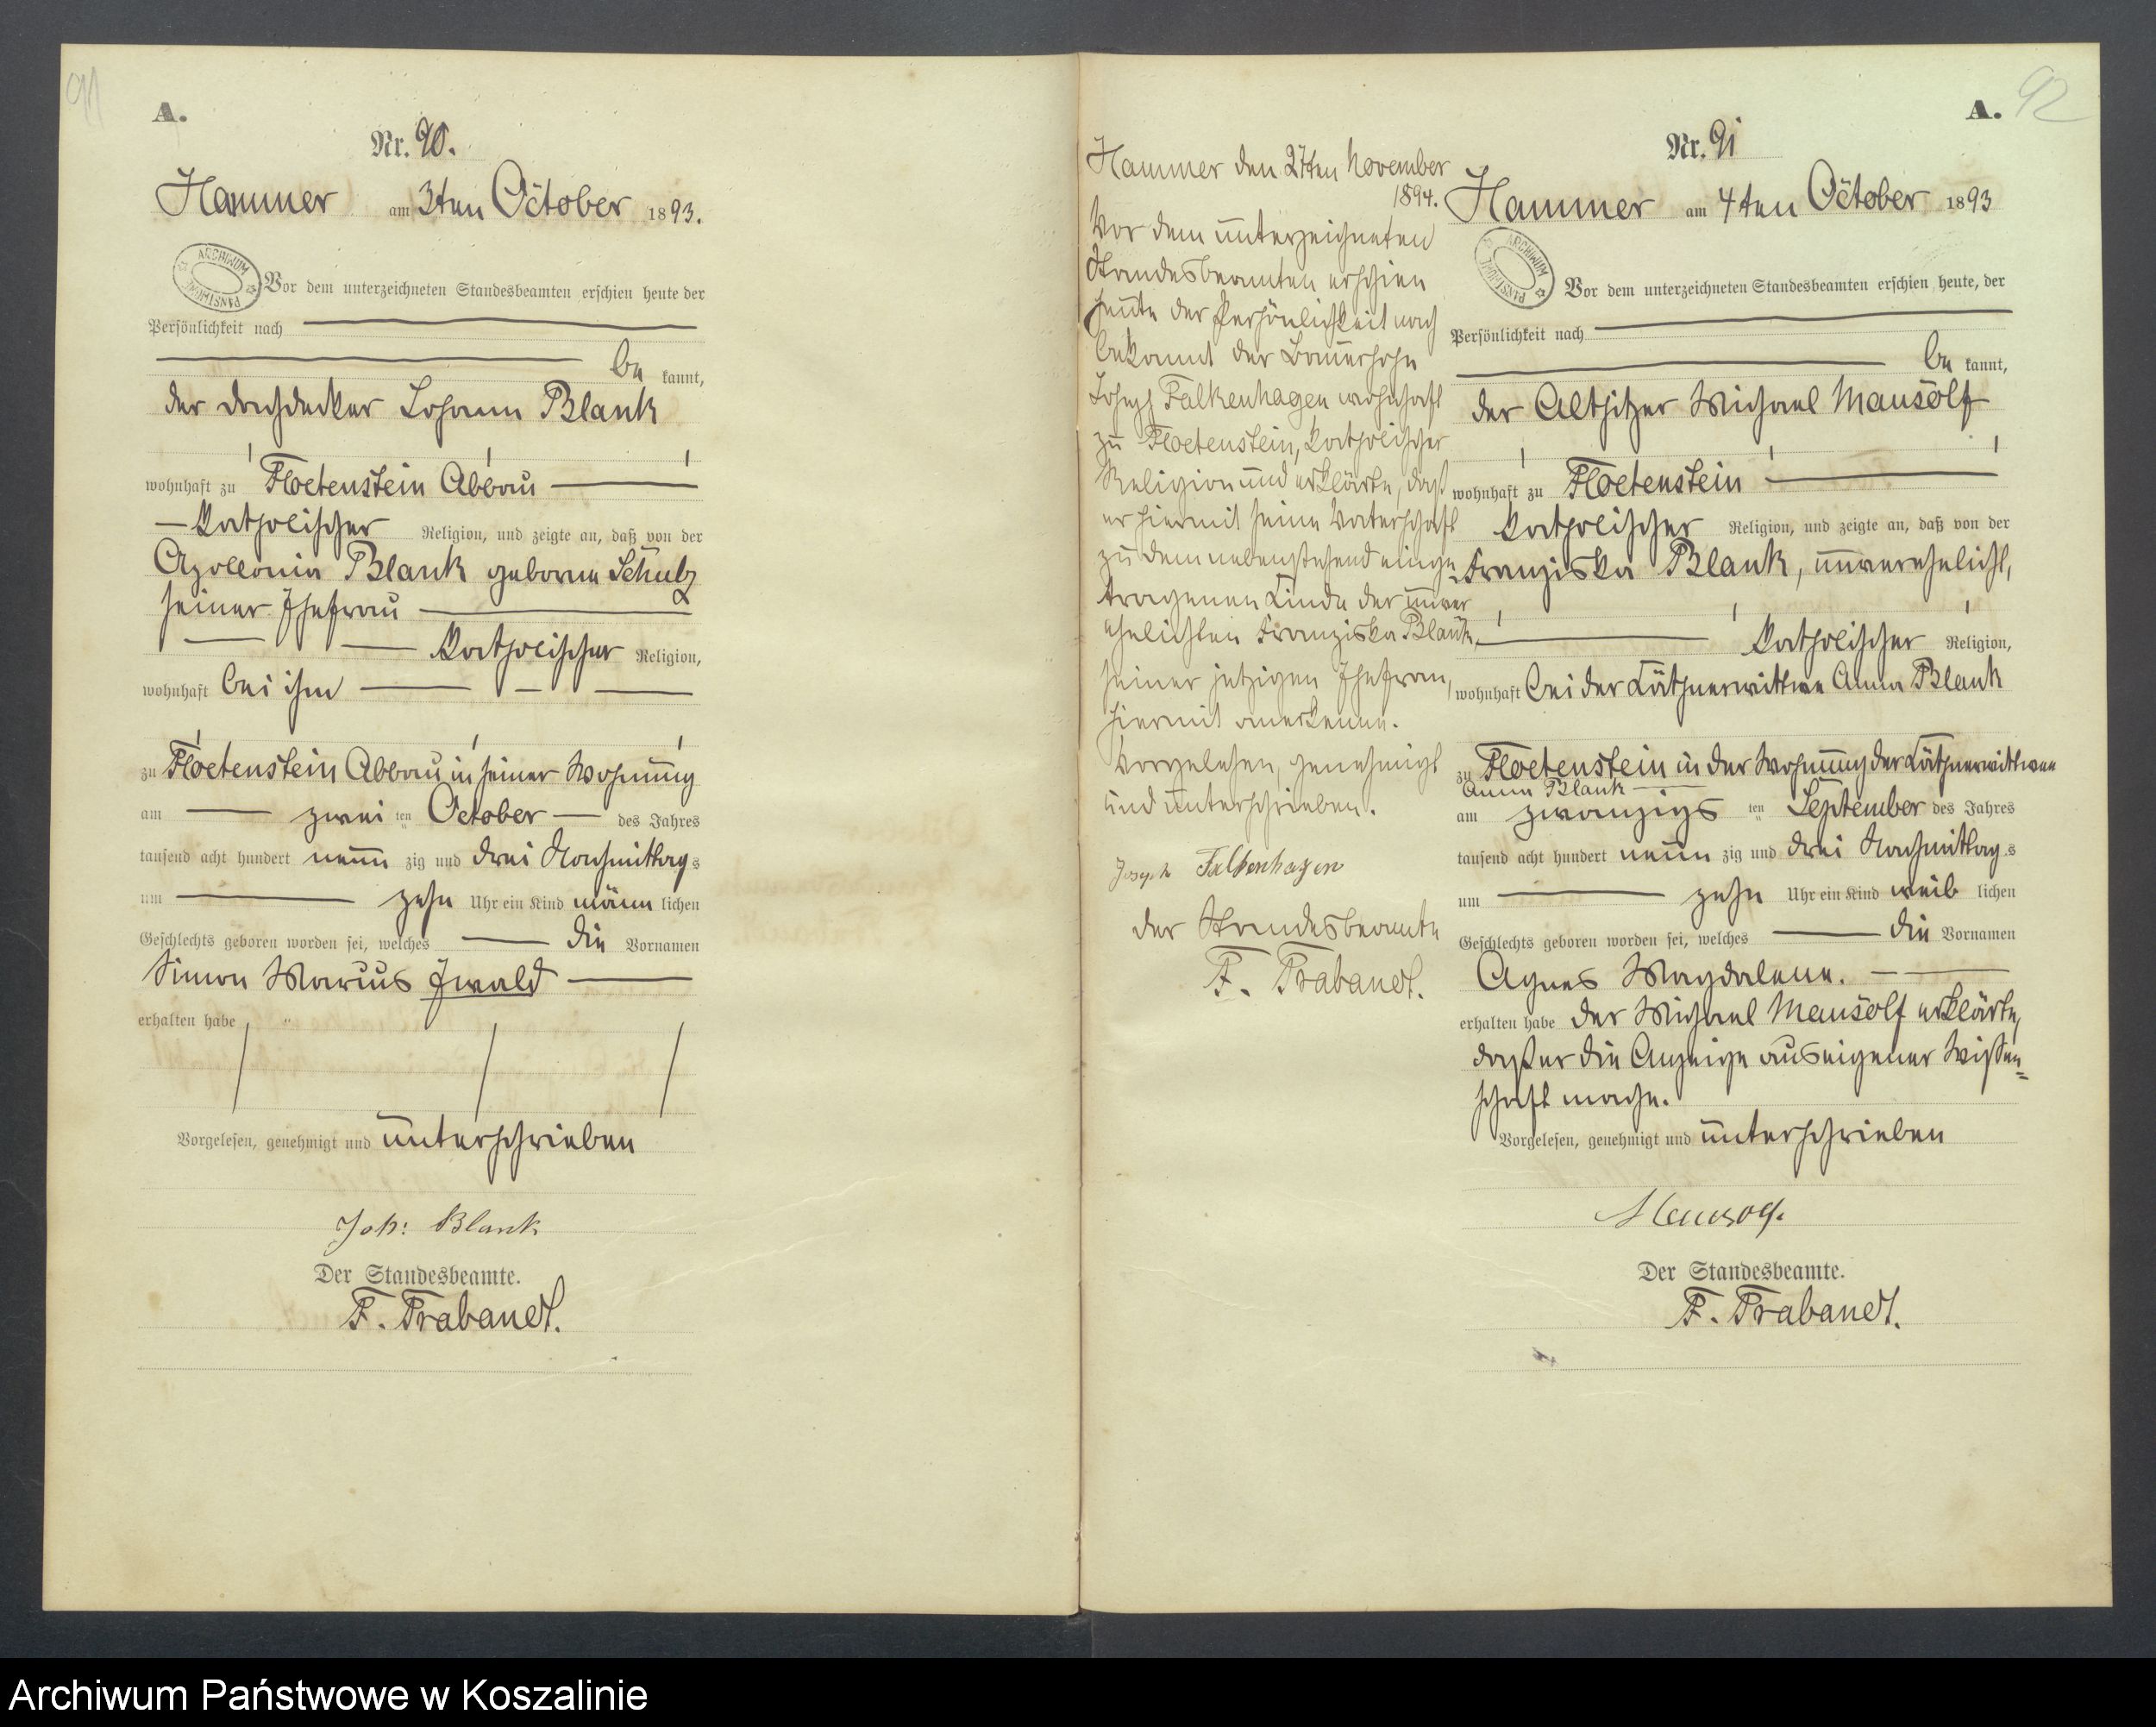 91
A.
Nr. 90.
Hammer am 3ten October 1893.
ARCHIWUM PAŃSTWOWE
Vor dem unterzeichneten Standesbeamten erschien heute der
Persönlichkeit nach
be kannt,
der Dachdecker Johann Blank
wohnhaft zu Floetenstein Abbau
katholischer Religion, und zeigte an, daß von der
Apollonia Blank geborne Schulz
seiner Ehefrau
katholischer Religion,
wohnhaft bei ihm
zu Floetenstein Abbau in seiner Wohnung
am zwei ten October des Jahres
tausend acht hundert neun zig und drei Nachmittag s
um zehn Uhr ein Kind männ lichen
Geschlechts geboren worden sei, welches die Vornamen
Simon Marius Ewald
erhalten habe
Vorgelesen, genehmigt und unterschrieben
Joh: Blank
Der Standesbeamte.
F. Trabandt.
Hammer den 27ten November
1894.
Vor dem unterzeichneten
Standesbeamten erschien
heute der Persönlichkeit nach
bekannt der Bauersohn
Joseph Falkenhagen wohnhaft
zu Floetenstein, katholischer
Religion und erklärte, daß
er hiermit seine Vaterschaft
zu dem nebenstehend einge
tragenen Kinde der unver
ehelichten Franziska Blank,
seiner jetzigen Ehefrau,
hiermit anerkenne.
Vorgelesen, genehmigt
und unterschrieben.
Joseph Falkenhagen
der Standesbeamte
F. Trabandt.
92
A.
Nr. 91
Hammer am 4ten October 1893
ARCHIWUM PAŃSTWOWE
Vor dem unterzeichneten Standesbeamten erschien heute, der
Persönlichkeit nach
be kannt,
der Altsitzer Michael Mausolf
wohnhaft zu Floetenstein
katholischer Religion, und zeigte an, daß von der
Franziska Blank, unverehelicht,
katholischer Religion,
wohnhaft bei der Käthnerwittwe Anna Blank
zu Floetenstein in der Wohnung der Käthnerwittwe
Anna Blank
am zwanzigs ten September des Jahres
tausend acht hundert neun zig und drei Nachmittag s
um zehn Uhr ein Kind weib lichen
Geschlechts geboren worden sei, welches die Vornamen
Agnes Magdalene.
erhalten habe der Michael Mausolf erklärte,
daß er die Anzeige aus eigener Wissen=
schaft mache.
Vorgelesen, genehmigt und unterschrieben
Der Standesbeamte.
F. Trabandt.
Archiwum Państwowe w Koszalinie